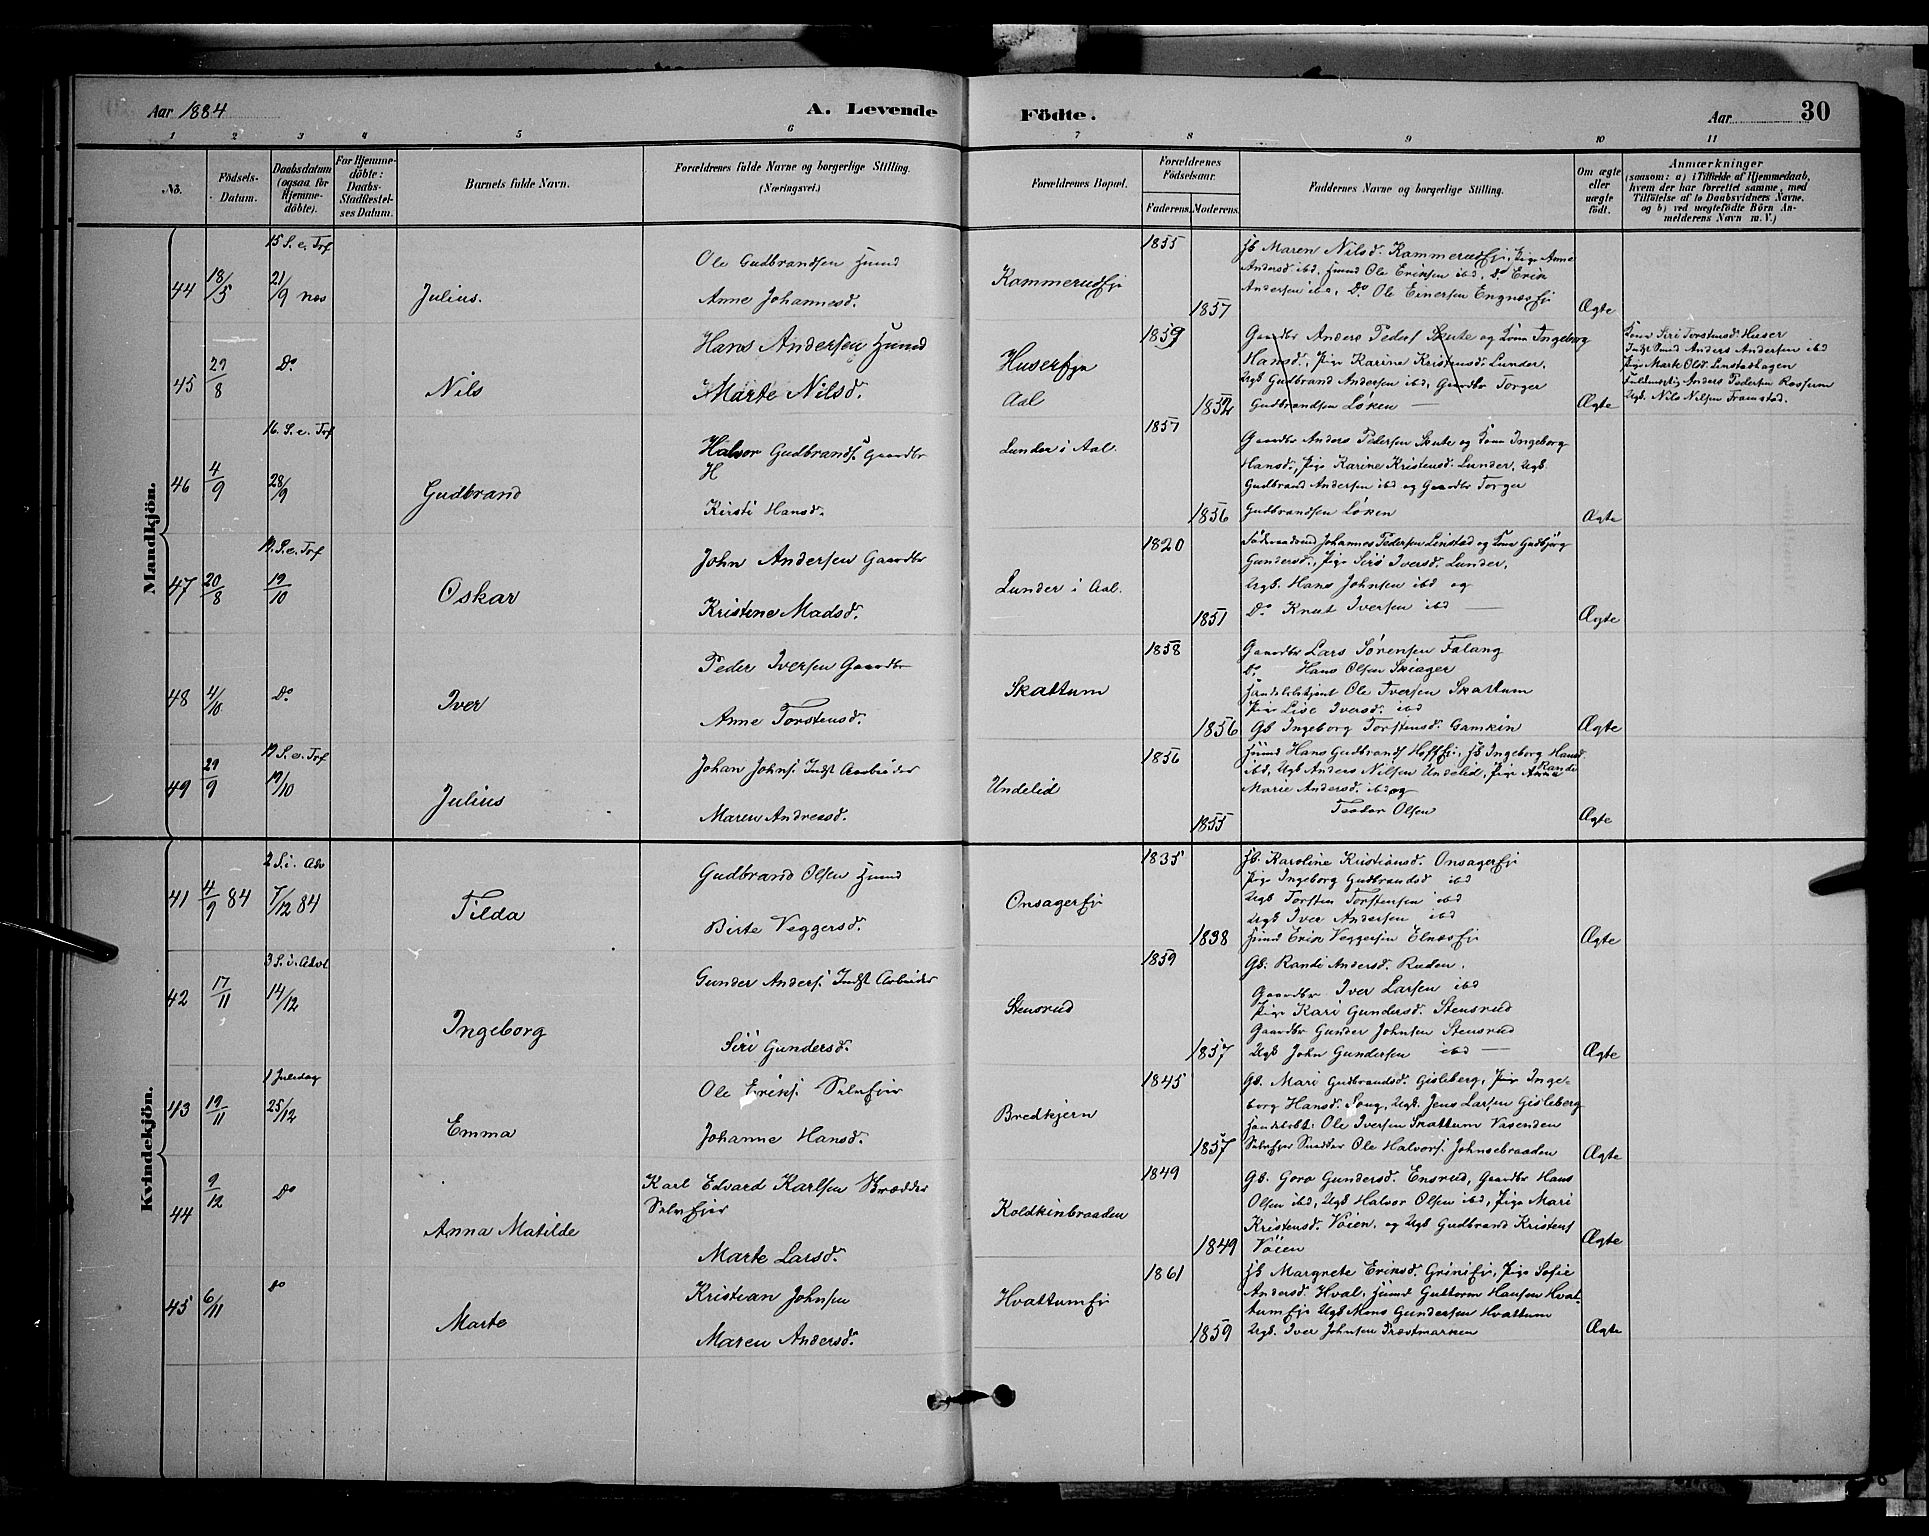 Aar 1884
A. Levende
Födte.
Aar
30
1 2 3 4 5 6 7 8 9 10 11
No.
Födsels-
Datum.
Daabsdatum
(ogsaa for
Hjemme-
döbte).
For Hjemme-
döbte:
Daabs-
Stadfæstel-
ses Datum.
Barnets fulde Navn.
Forældrenes fulde Navne og borgerlige Stilling.
(Næringsvei.)
Forældrenes Bopæl.
Forældrenes
Födselsaar.
Faderens.
Moderens.
Faddernes Navne og borgerlige Stilling.
Om ægte
eller
uægte
födt.
Anmærkninger
(saasom: a) i Tilfælde af Hjemmedaab,
hvem der har forrettet samme, med
Tilföielse af to Daabsvidners Navne,
og b) ved uægtefödte Börn An-
melderens Navn m. V.)
Mandkjön.
15 S. e. Trf
44 18/5 21/9 nos Julius.
Ole Gudbrandsen Huusmd
Anne Johannesd.
Kammerudfj
1855
1857
Hb. Maren Nilsd. Kammerudfj, Pige Anne
Andersd ibd, Huusmd Ole Eriksen ibd, Do Erik
Andersen ibd, Do. Ole Einersen Engnæsfj
Ægte
45 29/8 Do Nils
Hans Andersen Huusmd
Marte Nilsd.
Huserfjn
Aal
1859
1852
Gaardbr Anders Peders Skute og Kone Ingeborg
Hansd., Pige Karine Kristensd. Lunder,
Ugk Gudbrand Andersen ibd, Gaardbr Torger
Gudbrandsen Løken
Ægte
Kone Siri Torstensd. Huser
Indst Smed Anders Andersen ibd
Pige Mark Olsd. Linstadhagen
Fuldmægtig Anders Pedersen Rossum
Ugk. Nils Nilsen Framstad.
16. S. e. Trf
46 4/9 28/9 Gudbrand
Halvor Gudbrands. Gaardbr
H
Kirsti Hansd.
Lunder i Aal.
1857
1856
Gaardbr Anders Pedersen Skute og Kone Ingeborg
Hansd., Pige Karine Kristensd. Lunder, Ugk.
Gudbrand Andersen ibd og Gaardbr Torger
Gudbrandsen Løken
Ægte
19. S. e. Trf
47 20/8 19/10 Oskar
John Andersen Gaardbr
Kristine Madsd.
Lunder i Aal.
1820
1851
Föderaadsmd Johannes Pedersen Linstad og Kone Gudbjörg
Gundersd., Pige Siri Iversd. Lunder,
Ugk. Hans Johnsen ibd og
Do Knut Iversen ibd
Ægte
48 4/10 Do. Iver
Peder Iversen Gaardbr
Anne Torstensd.
Skattum
1858
1856
Gaardbr Lars Sørensen Falang
Do. Hans Olsen Skiager
Handelsbetjent Ole Iversen Skattum
Pige Lise Iversd. ibd
Gk Ingeborg Torstensd. Gamkin
Ægte
19 S. e. Trf
49 29/9 19/10 Julius
Johan Johns. Indst Arbeider
Maren Andreasd.
Undelid
1856
1855
Huusmd Hans Gudbrands Hoffsfj, Hk Ingeborg Hansd.
ibd, Ugk Anders Nilsen Undelid, Pige Anne Randi
Marie Andersd. ibd og
Teodor Olsen
Ægte
Kvindekjön.
2 S. i. Adv
41 4/9 84 7/12 84 Tilda
Gudbrand Olsen Huusmd
Birte Veggersd.
Onsagerfj
1835
1838
Hk. Karoline Kristiansd. Onsagerfj
Pige Ingeborg Gudbrandsd ibd
Ugk Torsten Torstensen ibd
Ugk Iver Andersen ibd
Huusmd Erik Veggersen Elnæsfj
Ægte
3 S. i. Advt
42 17/11 14/12 Ingeborg
Gunder Anders. Indst Arbeider
Siri Gundersd.
Stensrud
1859
1857
Gk. Randi Andersd. Ruden.
Gaardbr Iver Larsen ibd
Pige Kari Gundersd. Stensrud
Gaardbr Gunder Johnsen Stensrud
Ugk John Gundersen ibd
Ægte
1 Juledag
43 19/11 25/12 Emma
Ole Eriks. Selveier
Johanne Hansd.
Bredkjern
1845
1857
Gk. Mari Gudbrandsd. Gisleberg, Pige Inge-
borg Hansd. Soug, Ugk. Jens Larsen Gisleberg
Handelsbt. Ole Iversen Skattum Vasenden
Selveier Snedker Ole Halvors. Johnsebraaden
Ægte
44 9/12 Do Anna Matilde
Karl Edvard Karlsen Skrædder
Selveier
Marte Larsd.
Koldkinbraaden
1849
1849
Gk. Goro Gundersd. Ensrud, Gaardbr Hans
Olsen ibd, Ugk Halvor Olsen ibd, Pige Mari
Kristensd. Vöien, og Ugk Gudbrand Kristens
Vöien
Ægte
45 6/11 do Marte
Kristian Johnsen
Maren Andersd.
Hvattumfj
1861
1859
Hk Margrete Eriksd. Grinifj, Pige Sofie
Andersd. Hval, Huusmd Guttorm Hansen Hvat-
tumfj Ugk Mons Gundersen Hvattum
Ugk. Iver Johnsen Præstmarken
Ægte